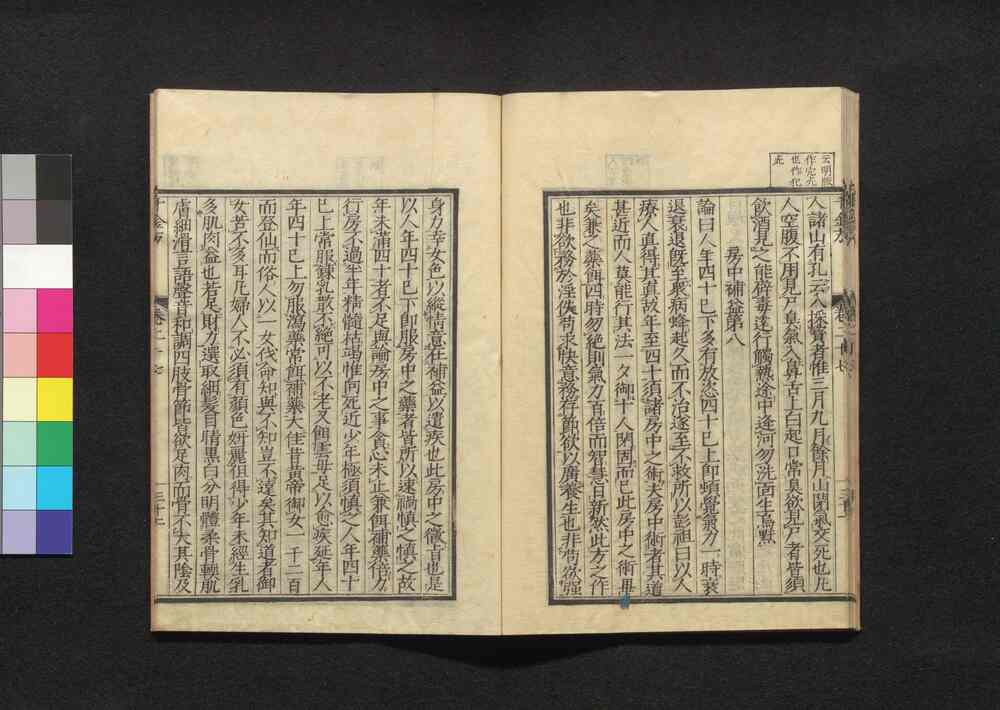 入諸山有孔云入採寶者惟三月九月餘月山閉氣交死也凡
人空腹不用見尸臭氣入鼻舌上白起口常臭欲見尸者皆須
飲酒見之能辟毒遠行觸熱途中逢河勿洗面生烏䵟
房中補益第八
論曰人年四十已下多有放恣四十已上即頓覺氣力一時衰
退衰退旣至衆病蜂起久而不治遂至不救所以彭祖曰以人
療人真得其真故年至四十須諸房中之術夫房中術者其道
甚近而人莫能行其法一夕御十人閉固而已此房中之術畢
矣兼之藥餌四時勿絶則氣力百倍而智慧日新然此方之作
也非欲務於淫佚苟求快意務存節欲以廣養生也非苟欲强
身力幸女色以縱情意在補益以遣疾也此房中之微旨也是
以人年四十已下即服房中之藥者皆所以速禍慎之慎之故
年未滿四十者不足與論房中之事貪心未止兼餌補藥倍力
行房不過半年精髓枯竭惟向死近少年極須慎之人年四十
已上常服鍾乳散不絶可以不老又餌雲母足以愈疾延年人
年四十已上勿服瀉藥常餌補藥大佳昔黃帝御女一千二百
而登仙而俗人以一女伐命知與不知豈不遠矣其知道者御
女苦不多耳凡婦人不必須有顏色妍麗但得少年未經生乳
多肌肉益也若足財力選取細髮目精黑白分明體柔骨輭肌
膚細滑言語聲音和調四肢骨節皆欲足肉而骨不大其陰及